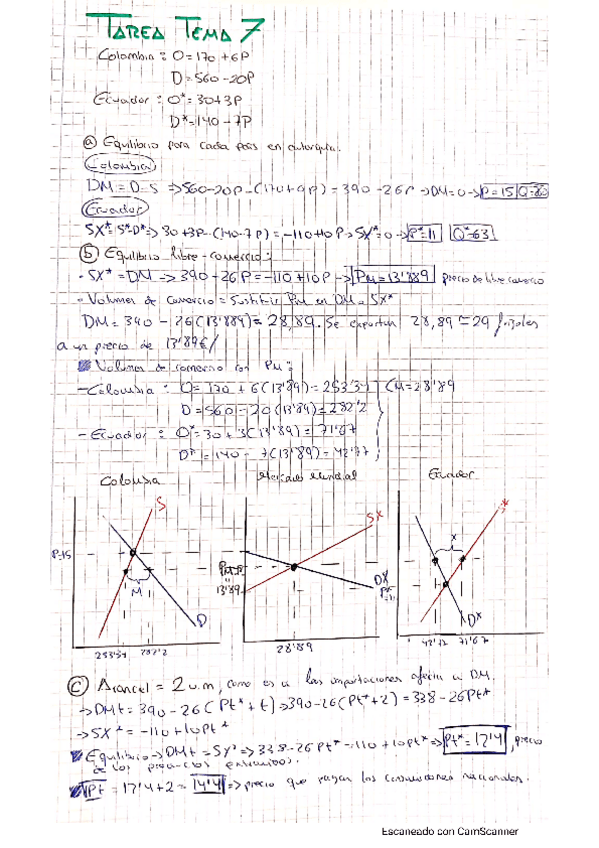 TAREA TEMA 7
Colombia: O=170+6P
D=560-20P
Ecuador: O*=30+3P
D*=140-7P
a Equilibrio para cada país en autarquía.
Colombia
DM = D-S => 560-20P-(170+6P) = 390-26P -> DM=0 -> P=15 Q=260
Ecuador
SX*=S*-D* => 30+3P-(140-7P) = -110+10P -> SX*=0 -> P*=11 Q*=63
b Equilibrio libre-comercio:
- SX* = DM -> 390-26P = -110+10P -> PM=13'889 precio de libre comercio
- Volumen de comercio = Sustituir PM en DM = SX*
DM = 390 - 26(13'889) = 28,89. Se exportan 28,89 ≈ 29 frijoles
a un precio de 13'89€/
Volumen de comercio con PM:
- Colombia: O = 170 + 6(13'89) = 253'34 CM=28'89
D = 560 - 20(13'89) = 282'2
- Ecuador: O* = 30 + 3(13'89) = 71'67
D* = 140 - 7(13'89) = 42'77
Colombia Mercado Mundial Ecuador
S SX S*
P=15 X
M 13'89 DX
D D*
253'34 282'2 28'89 42'77 71'67
c Arancel = 2 u.m, como es a las importaciones afecta a DM.
-> DMt = 390-26(Pt*+t) -> 390-26(Pt*+2) = 338-26Pt*
-> SX* = -110+10Pt*
Equilibrio -> DMt = SX* -> 338-26Pt* = -110+10Pt* => Pt*=12'4, precio
de los
Pt = 12'4+2 = 14'4 => precio que pagan los consumidores nacionales.
Escaneado con CamScanner